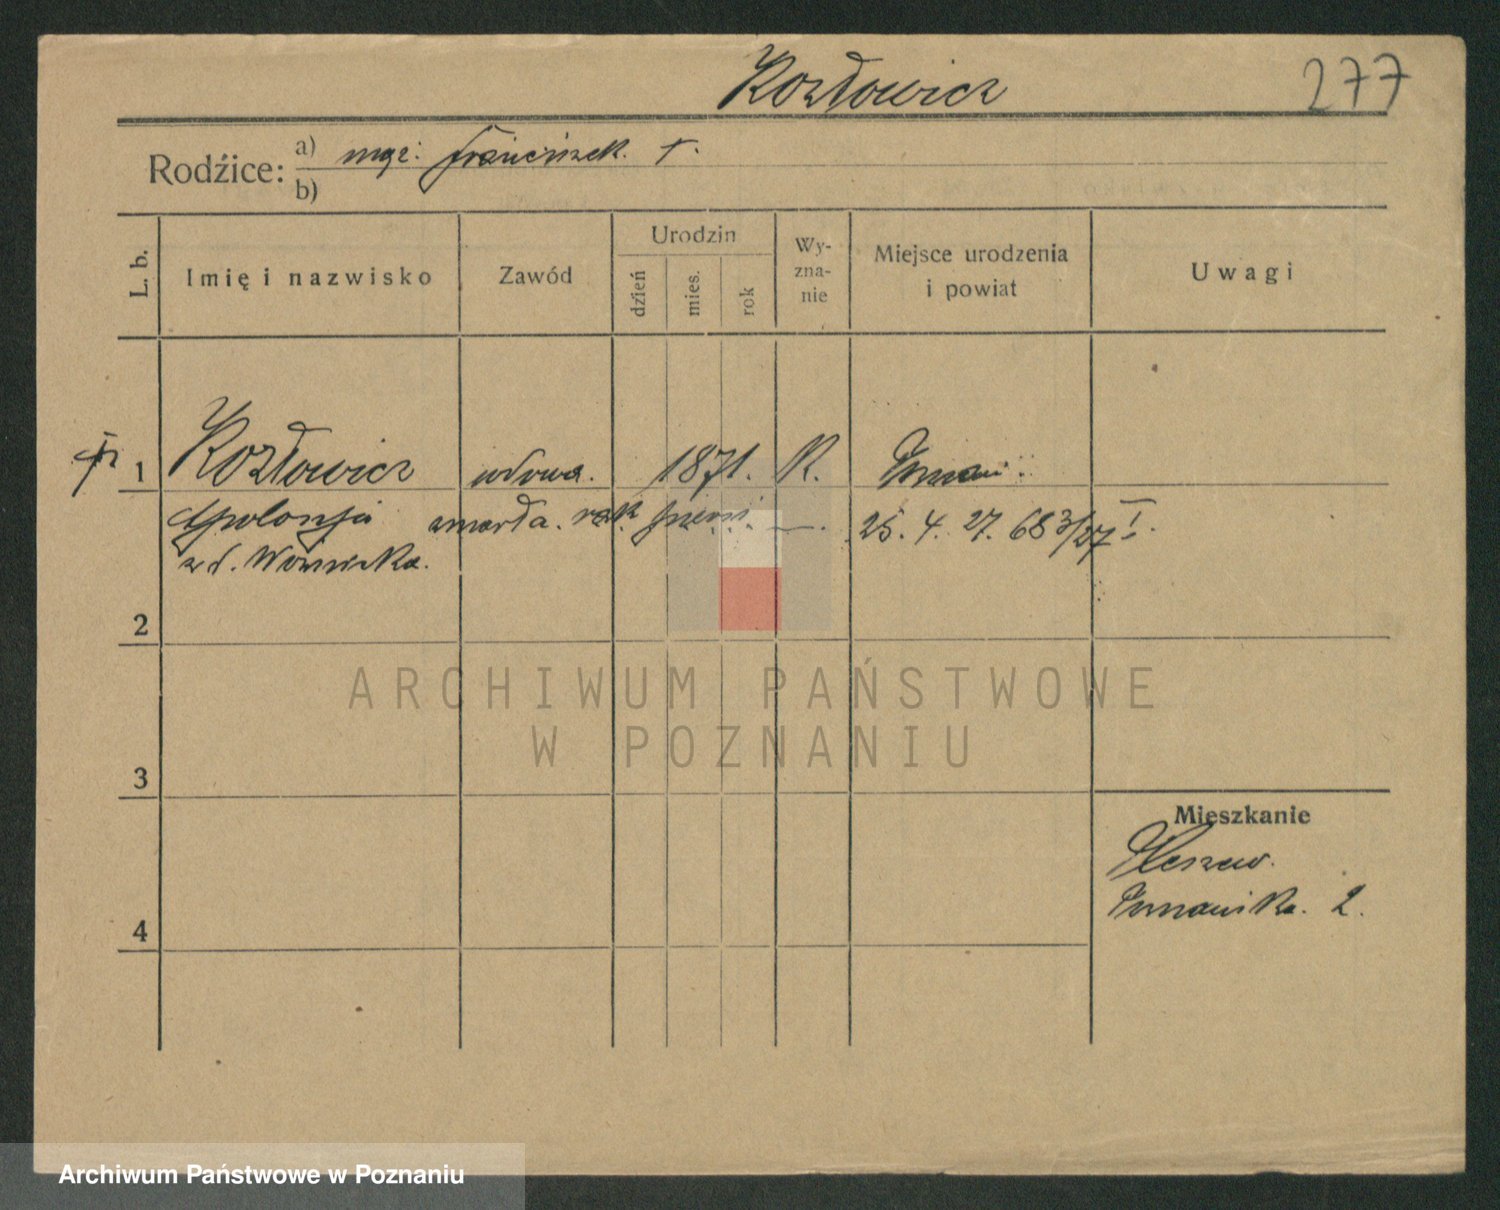 Kozłowicz 277
Rodzice: a) mąż. Franciszek. †.
b)
L. b. Imię i nazwisko Zawód Urodzin dzień mies. rok Wy-zna-nie Miejsce urodzenia i powiat Uwagi
† 1 Kozłowicz wdowa. 1871. K. Poznań.
Apolonja zmarła. rak piersi —. 25. 4. 27. 683/27 I.
zd.
2
ARCHIWUM PAŃSTWOWE
W POZNANIU
3
Mieszkanie
Pleszew.
Poznańska. 2.
4
Archiwum Państwowe w Poznaniu